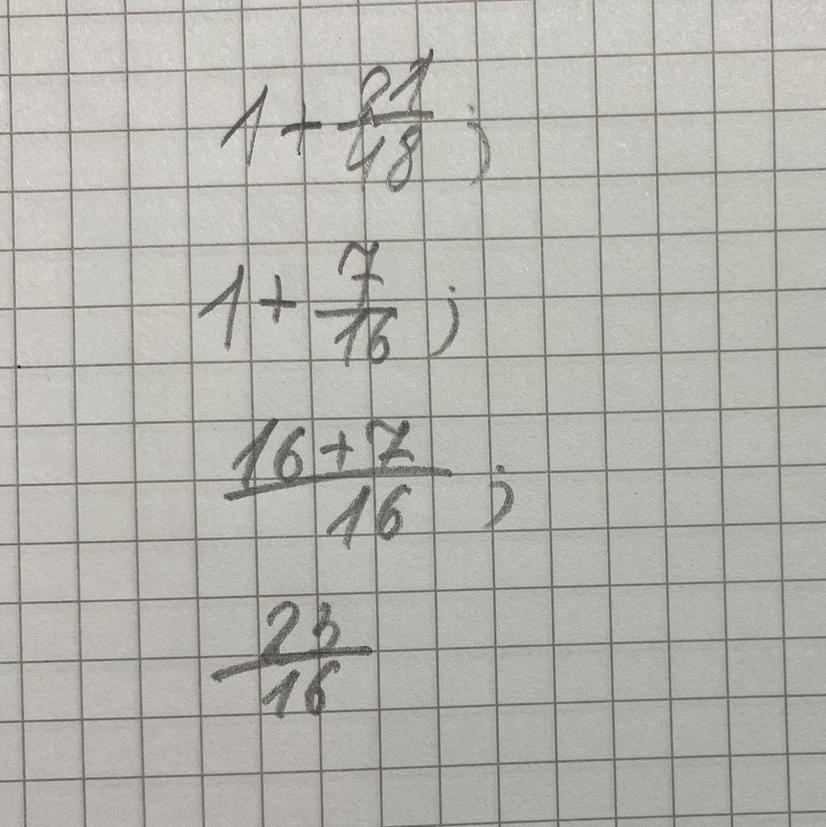 1 + 21/48 ;
1 + 7/16 ;
16 + 7/16 ;
23/16